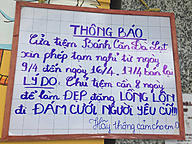 THÔNG BÁO
Cửa tiệm Bánh Căn Đà Lạt
xin phép tạm nghỉ từ ngày
9/4 đến ngày 16/4, 17/4 bán lại
LÝ DO: Chủ tiệm cần 8 ngày
để làm ĐẸP dáng LỘNG LỘN
đi ĐÁM CƯỚI NGƯỜI YÊU CŨ!!!
Hãy thông cảm cho em